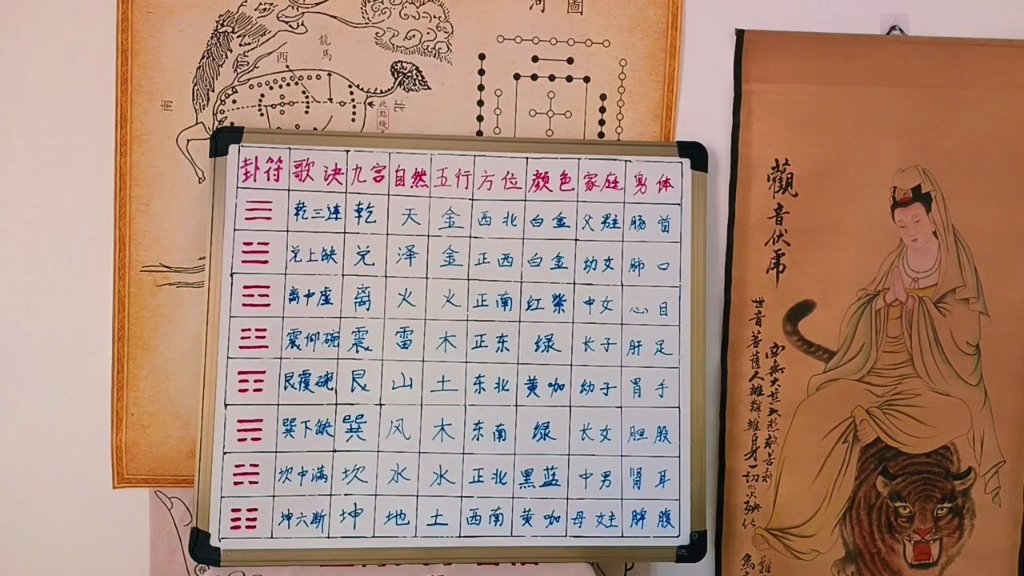 河圖
龍馬
西
南
北
卦符 歌决 九宫 自然 五行 方位 颜色 家庭 身体
☰ 乾三连 乾 天 金 西北 白金 父 肠首
☱ 兑上缺 兑 泽 金 正西 白金 幼女 肺口
☲ 离中虚 离 火 火 正南 红紫 中女 心目
☳ 震仰碗 震 雷 木 正东 绿 长子 肝足
☶ 艮覆碗 艮 山 土 东北 黄咖 幼子 胃手
☴ 巽下缺 巽 风 木 东南 绿 长女 胆股
☵ 坎中满 坎 水 水 正北 黑蓝 中男 肾耳
☷ 坤六断 坤 地 土 西南 黄咖 母女主 脾腹
觀音伏虎